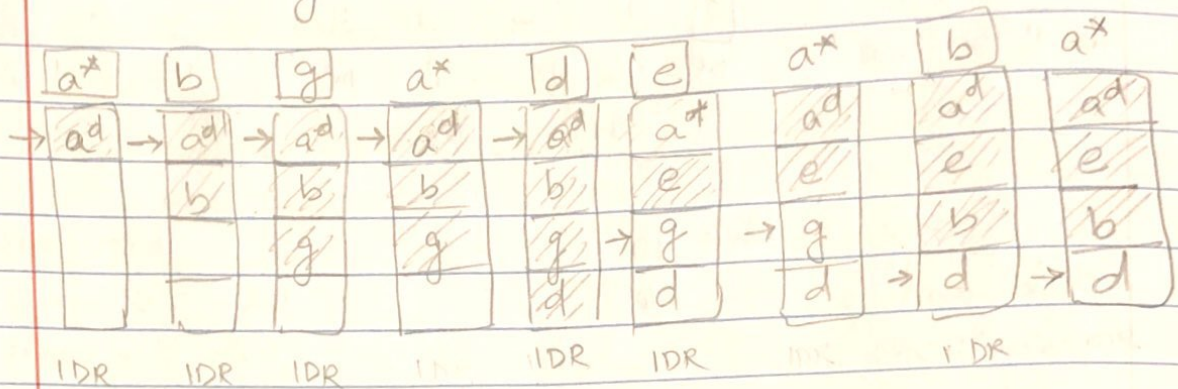 a* b g a* d e a* b a*
→ aᵈ → aᵈ → aᵈ → aᵈ → aᵈ a* aᵈ aᵈ aᵈ
b b b b e e e e
g g g → g → g b b
d d d → d → d
1DR 1DR 1DR 1DR 1DR 1DR